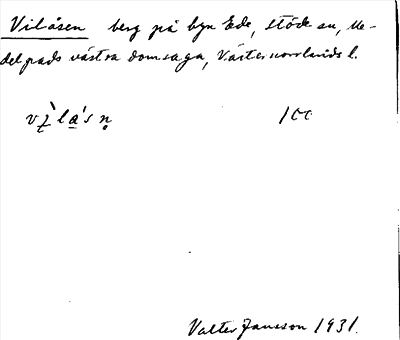 Vilåsen berg på byn Ede, Stöde sn, Me-
delpads västra domsaga, Västernorrlands l.
vì̖lá̱'sn̥ 1cc
Valter Jansson 1931.